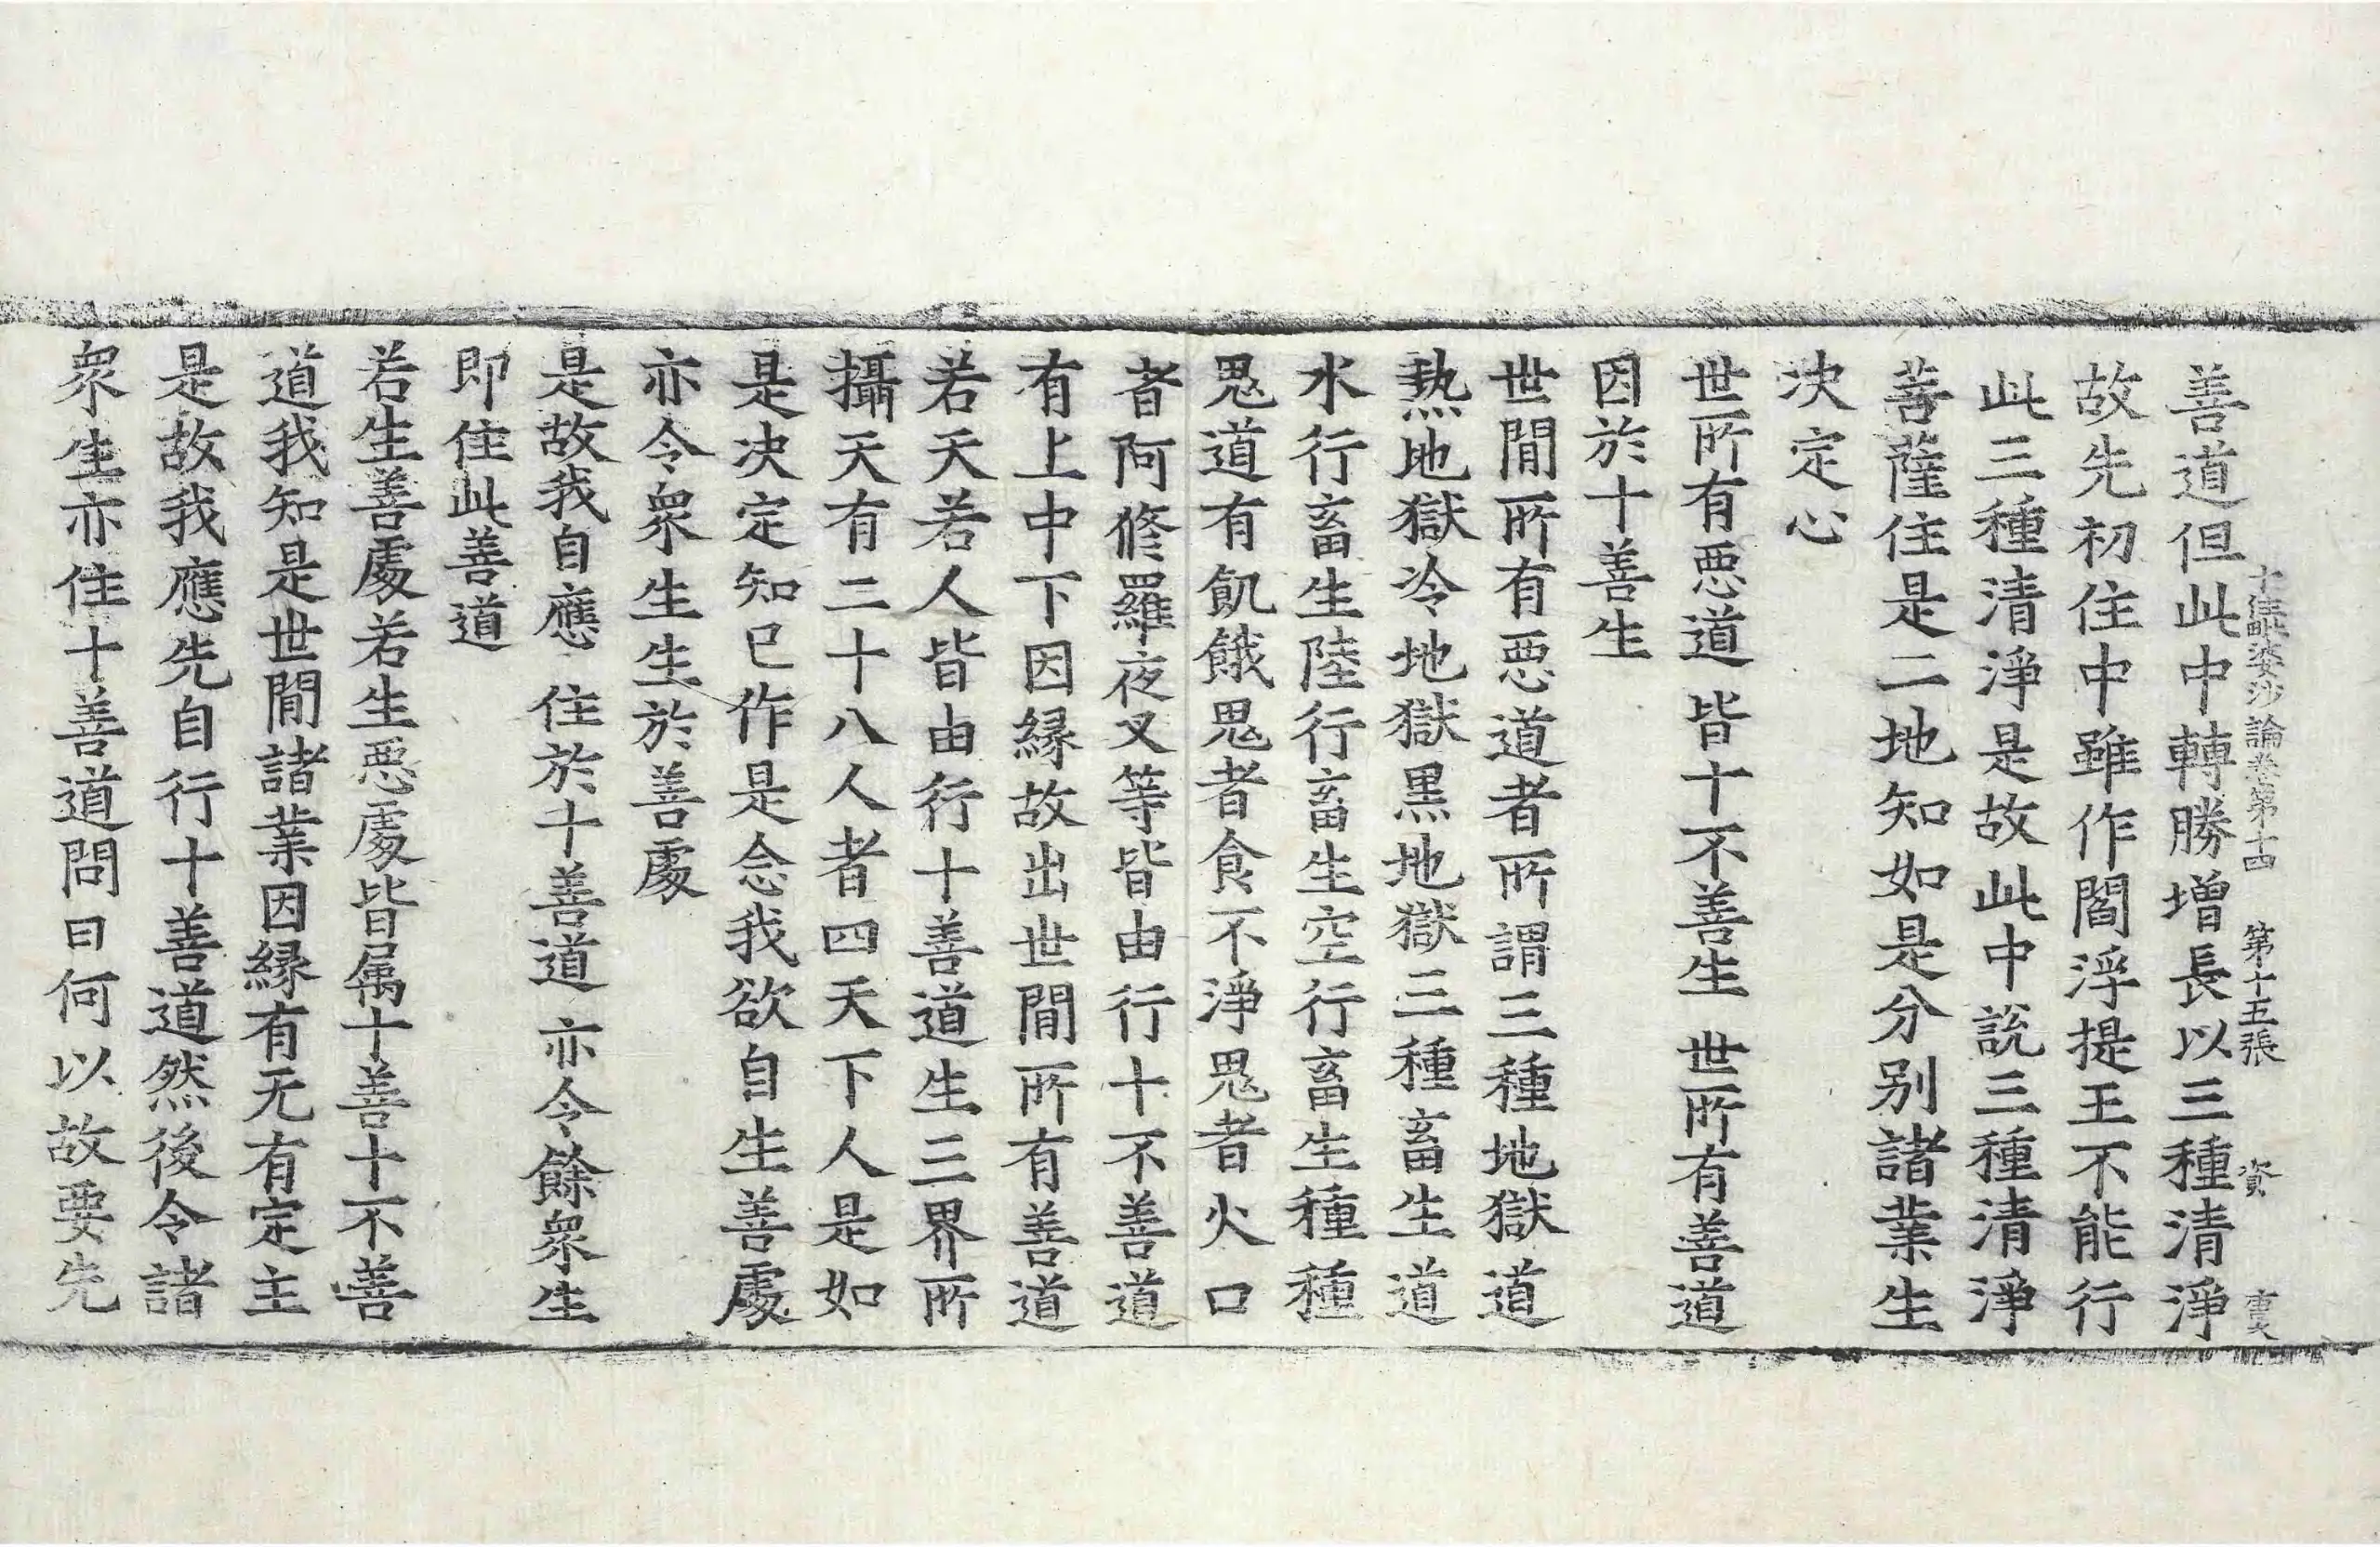 十住毗婆沙論卷第十四 第十五張 資
善道但此中轉勝增長以三種清淨
故先初住中雖作閻浮提王不能行
此三種清淨是故此中說三種清淨
菩薩住是二地知如是分别諸業生
决定心
世所有惡道 皆十不善生 世所有善道
因於十善生
世閒所有惡道者所謂三種地獄道
熱地獄冷地獄黑地獄三種畜生道
水行畜生陸行畜生空行畜生種種
鬼道有飢餓鬼者食不淨鬼者火口
者阿修羅夜叉等皆由行十不善道
有上中下因緣故出世閒所有善道
若天若人皆由行十善道生三界所
攝天有二十八人者四天下人是如
是决定知已作是念我欲自生善處
亦令衆生生於善處
是故我自應 住於十善道 亦令餘衆生
即住此善道
若生善處若生惡處皆屬十善十不善
道我知是世閒諸業因緣有无有定主
是故我應先自行十善道然後令諸
衆生亦住十善道問曰何以故要先